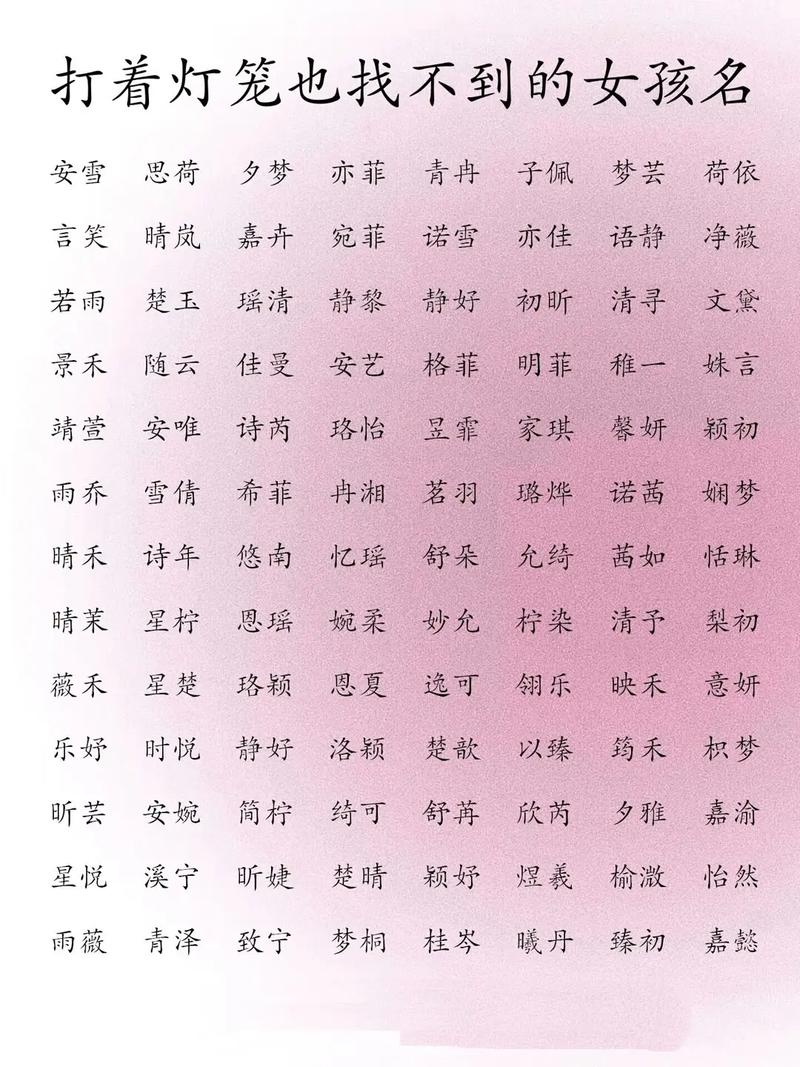 打着灯笼也找不到的女孩名
安雪 思荷 夕梦 亦菲 青冉 子佩 梦芸 荷依
言笑 晴岚 嘉卉 宛菲 诺雪 亦佳 语静 净薇
若雨 楚玉 瑶清 静黎 静好 初昕 清寻 文黛
景禾 随云 佳曼 安艺 格菲 明菲 稚一 姝言
靖萱 安唯 诗芮 珞怡 昱霏 家琪 馨妍 颖初
雨乔 雪倩 希菲 冉湘 茗羽 璐烨 诺茜 娴梦
晴禾 诗年 悠南 忆瑶 舒朵 允绮 茜如 恬琳
晴茉 星柠 恩瑶 婉柔 妙允 柠染 清予 梨初
薇禾 星楚 珞颖 恩夏 逸可 翎乐 映禾 意妍
乐妤 时悦 静好 洛颖 楚歆 以臻 筠禾 枳梦
昕芸 安婉 简柠 绮可 舒苒 欣芮 夕雅 嘉渝
星悦 溪宁 昕婕 楚晴 颖妤 煜羲 榆溦 怡然
雨薇 青泽 致宁 梦桐 桂岑 曦丹 臻初 嘉懿